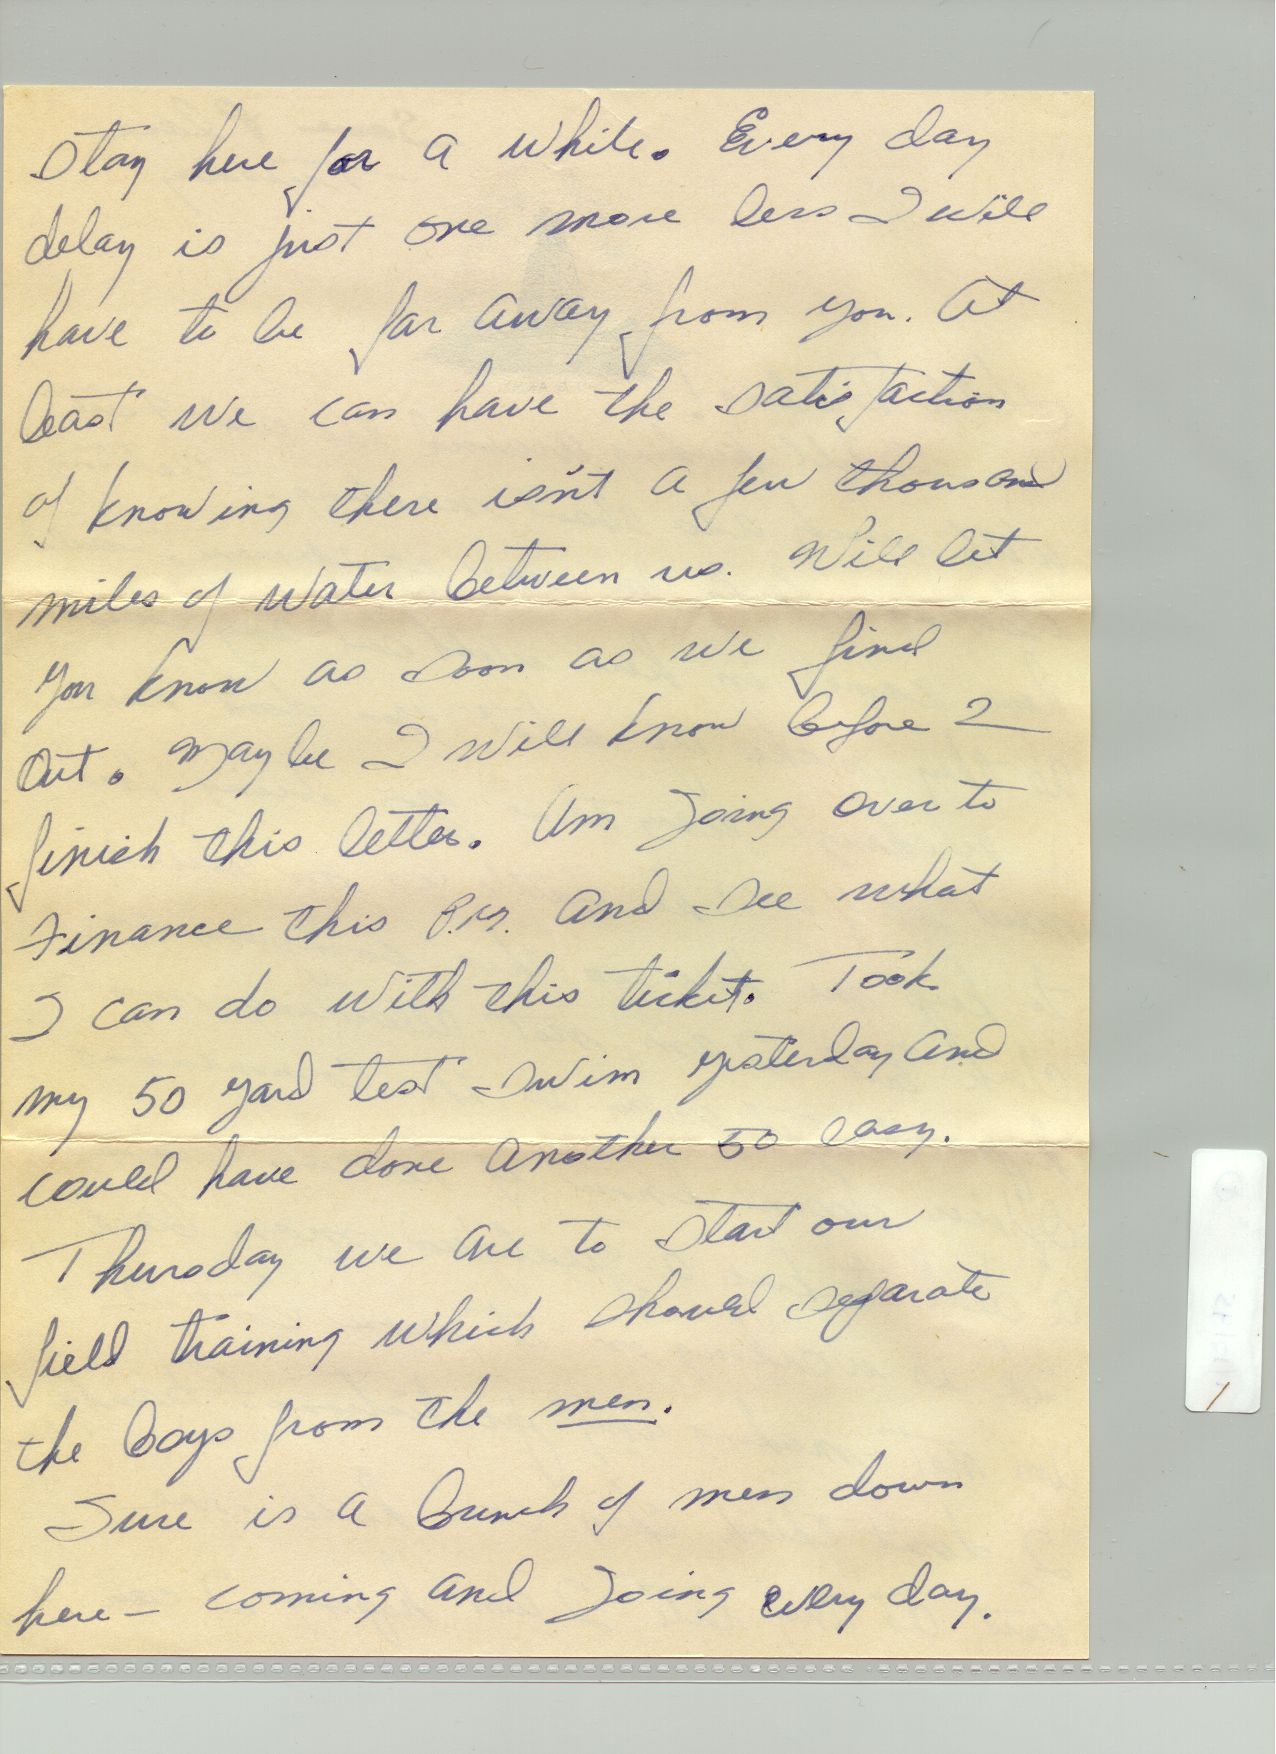 Stay here for a while. Every day
delay is just one more less I will
have to be far away from you. At
least we can have the satisfaction
of knowing there isn't a few thousand
miles of water between us. Will let
you know as soon as we find
out. Maybe I will know before I
finish this letter. Am going over to
Finance this P.M. and see what
I can do with this ticket. Took
my 50 yard test swim yesterday and
could have done another 50 easy.
Thursday we are to start our
field training which should separate
the boys from the men.
Sure is a bunch of men down
here - coming and going every day.